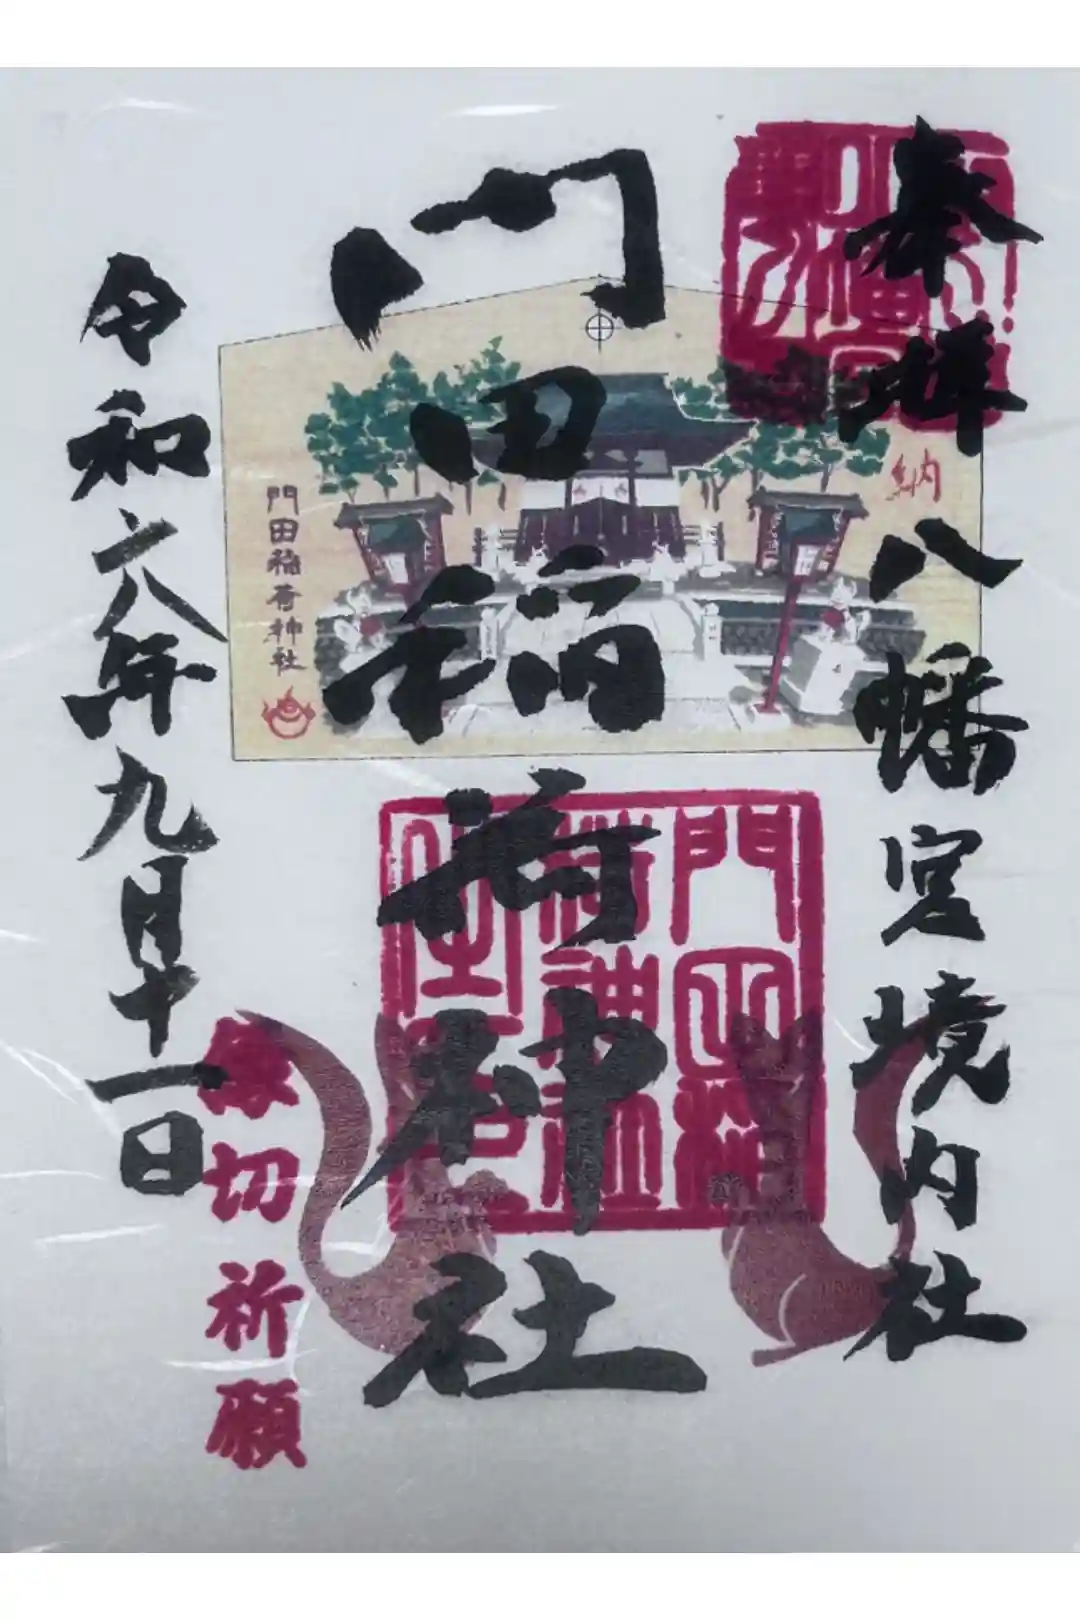 奉拝
八幡宮境内社
納
門田稲荷神社
門田稲荷神社
縁切祈願
令和六年九月十一日